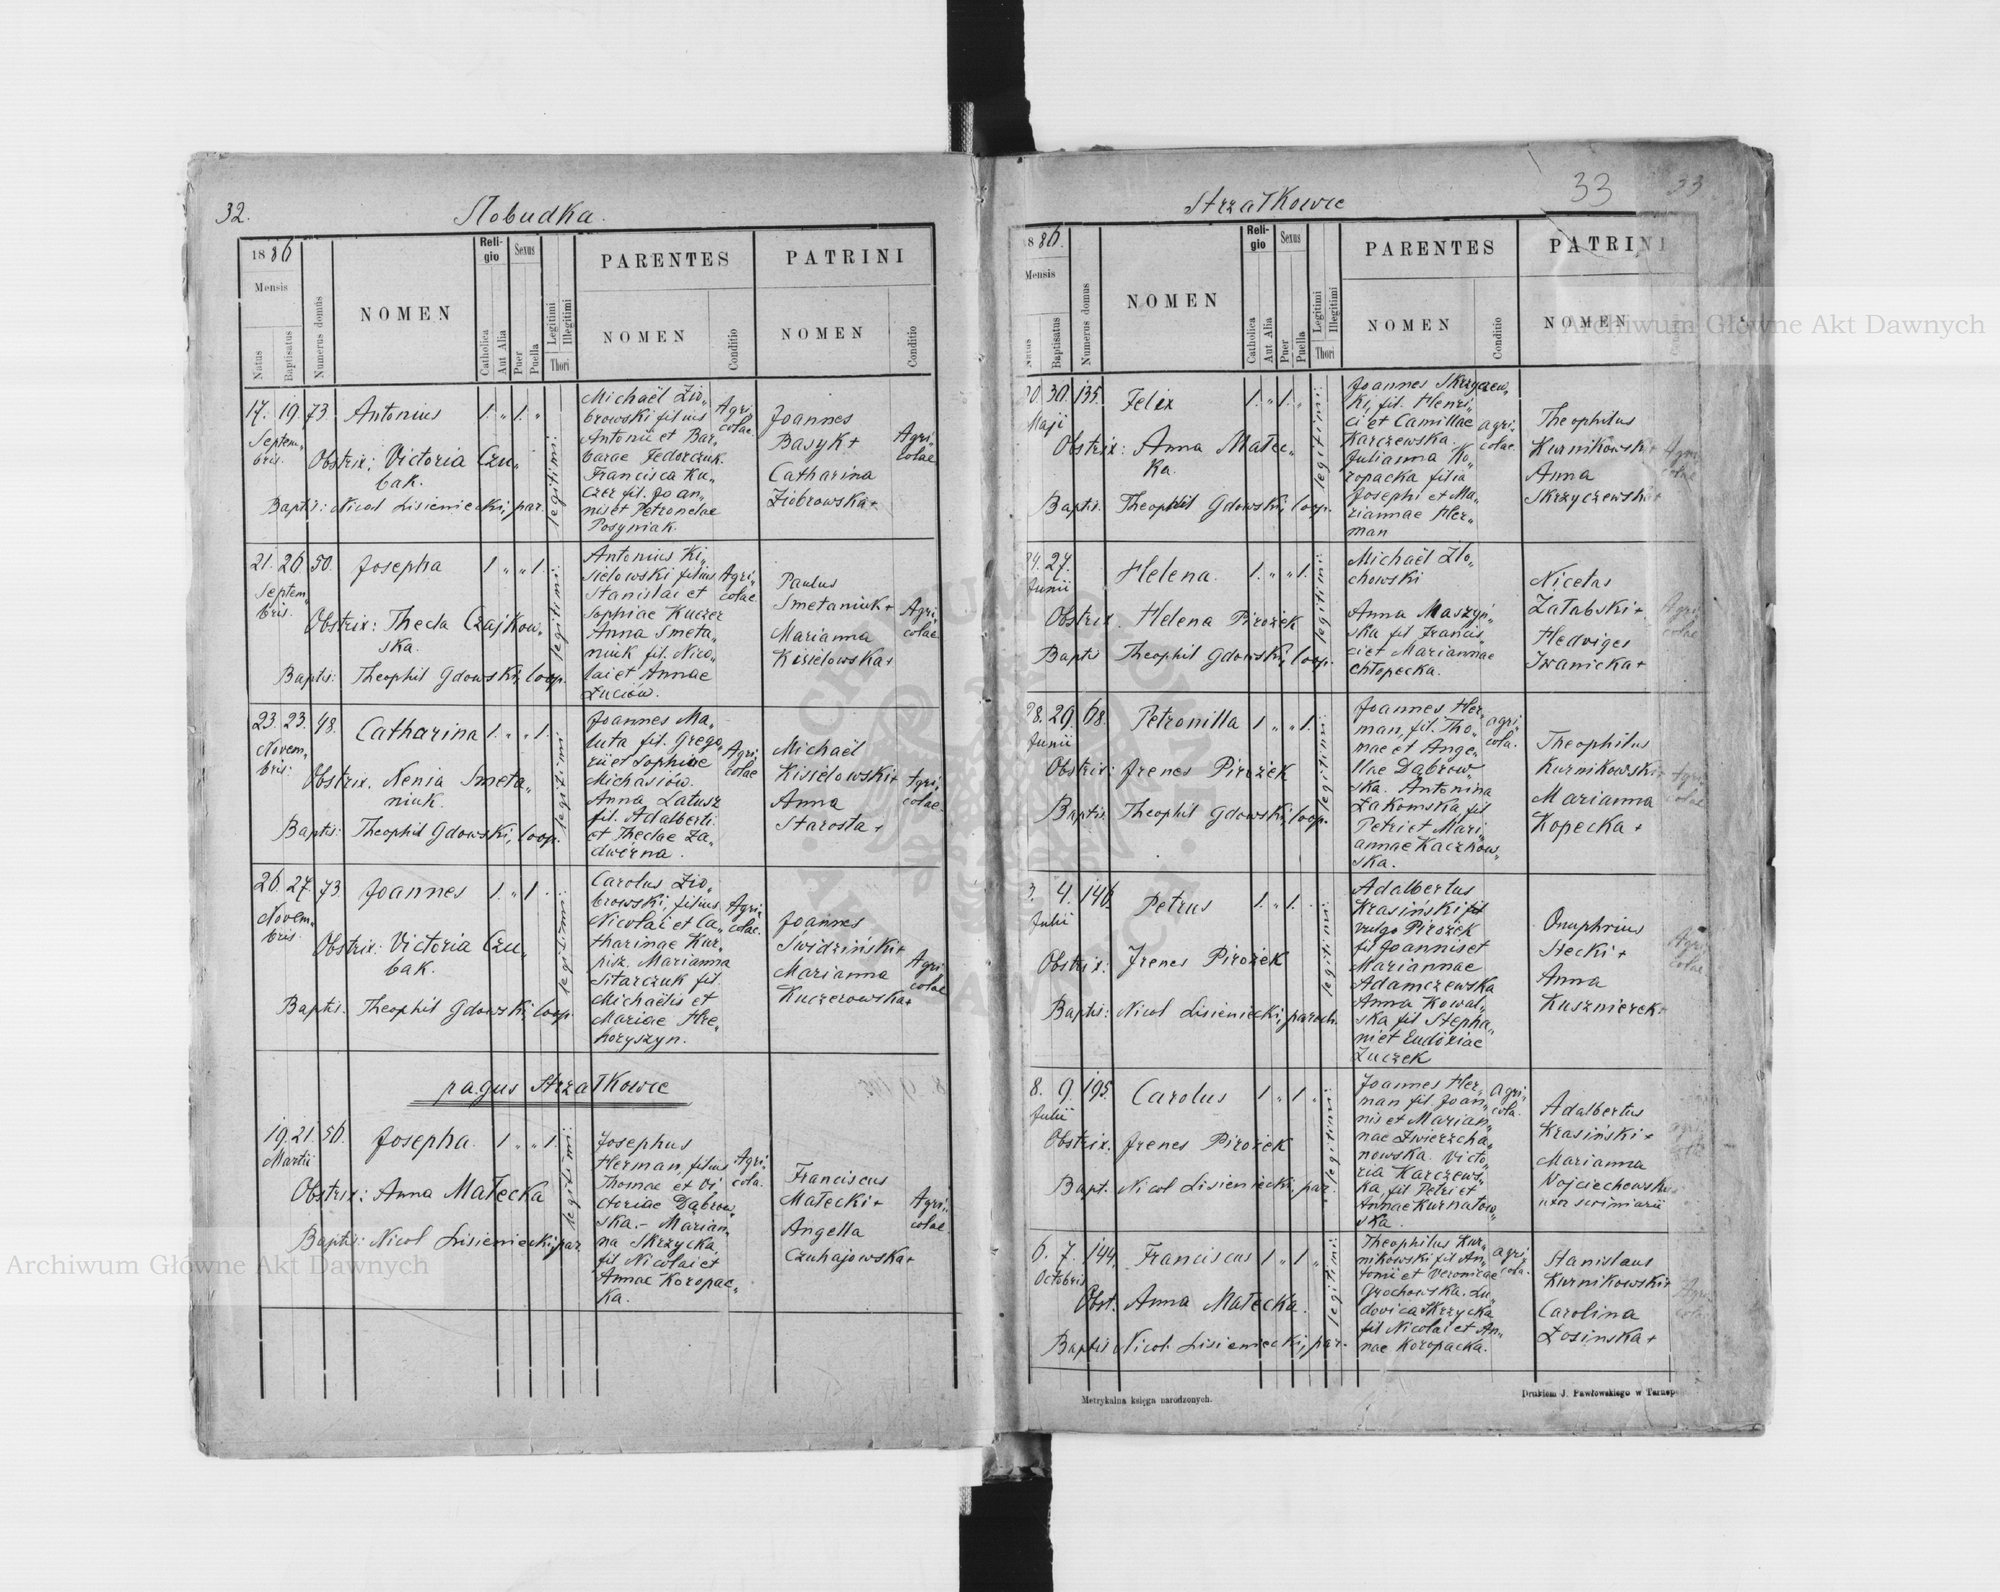 32.
Słobudka.
1886
Mensis
Natus
Baptisatus
Numerus domus
NOMEN
Religio
Catholica
Aut Alia
Sexus
Puer
Puella
Legitimi
Illegitimi
Thori
PARENTES
NOMEN
Conditio
PATRINI
NOMEN
Conditio
17. 19. 73. Antonius 1. „ 1. „
Septem„
bris.
Obstrix: Victoria Czu„
bak.
Baptis: Nicol Lisieniecki, par.
legitimi.
Michaël Zio„
browski filius
Antonii et Bar„
barae Fedorczuk.
Francisca Ku„
czer fil. Joan„
nis et Petronelae
Posyniak.
Agri„
colae.
Joannes
Basyk +
Catharina
Ziobrowska +
Agri„
colae
21. 26 50. Josepha 1 „ „ 1.
Septem„
bris.
Obstrix: Thecla Czajkow„
ska.
Baptis: Theophil Gdowski, coop.
legitimi.
Antonius Ki„
sielowski filius
Stanislai et
Sophiae Kuczer
Anna Smeta„
niuk fil. Nico„
lai et Annae
Łuciów.
Agri„
colae
Paulus
Smetaniuk +
Marianna
Kisielowska +
Agri„
colae
23. 23. 48. Catharina 1. „ „ 1.
Novem„
bris:
Obstrix. Nenia Smeta„
niuk.
Baptis: Theophil Gdowski, coop.
legitimi
Joannes Ma„
luta fil. Grego„
rii et Sophiae
Michasiów.
Anna Latusz
fil. Adalberti
et Theclae Za„
dwirna.
Agri„
colae
Michaël
Kisielowski +
Anna
Starosta +
Agri„
colae
26. 27. 73. Joannes 1. „ 1.
Novem„
bris.
Obstrix: Victoria Czu„
bak.
Baptis. Theophil Gdowski, coop.
legitimi.
Carolus Zio„
browski, filius
Nicolai et Ca„
tharinae Kar„
pisz. Marianna
Sitarczuk fil.
Michaëlis et
Mariae Hre„
horyszyn.
Agri„
colae.
Joannes
Świdziński +
Marianna
Kuczerowska +
Agri„
colae
pagus Strzałkowce
19. 21. 56. Josepha. 1 „ „ 1.
Martii
Obstrix: Anna Małecka
Baptis: Nicol Lisieniecki, par.
legitimi:
Josephus
Herman, filius
Thomae et Vi„
ctoriae Dąbrow„
ska. - Marian„
na Skrzycka,
fil Nicolai et
Annae Koropac„
ka.
Agri„
cola.
Franciscus
Małecki +
Angella
Czuhajowska +
Agri„
colae
Strzałkowce
33
33
1886.
Mensis
Natus
Baptisatus
Numerus domus
NOMEN
Religio
Catholica
Aut Alia
Sexus
Puer
Puella
Legitimi
Illegitimi
Thori
PARENTES
NOMEN
Conditio
PATRINI
NOMEN
30. 135. Felix 1. „ 1. „
Maji
Obstrix: Anna Małec„
ka.
Baptis. Theophil Gdowski, coop.
legitimi:
Joannes Skrzyczew„
ki, fil. Henri„
ci et Camillae
Karczewska.
Julianna Ko„
ropacka filia
Josephi et Ma„
riannae Her„
man
agri„
colae.
Theophilus
Kurnikowski +
Anna
Skrzyczewska +
Agri„
colae
24. 27. Helena. 1. „ „ 1.
Junii
Obstrix. Helena Pirożek
Baptis Theophil Gdowski, coop.
legitimi:
Michaël Zło„
chowski
Anna Maszyń„
ska fil Francis„
ci et Mariannae
Chłopecka.
Nicetas
Załabski +
Hedviges
Iwanicka +
Agri„
colae
28. 29. 68. Petronilla 1 „ „ 1.
Junii
Obstrix: Jrenes Pirożek
Baptis. Theophil Gdowski, coop.
legitimi:
Joannes Her„
man, fil. Tho„
mae et Ange„
llae Dąbrow„
ska. Antonina
Zakomska, fil
Petri et Mari„
annae Kaczkow„
ska.
agri„
cola.
Theophilus
Kurnikowski +
Marianna
Kopecka +
Agri„
colae
3. 4. 146. Petrus 1. „ 1.
Julii
Obstrix: Jrenes Pirożek
Baptis: Nicol Lisieniecki, paroch.
legitimi
Adalbertus
Krasiński fil
vulgo Pirożek
fil Joannis et
Mariannae
Adamczewska
Anna Kowal„
ska fil Stepha„
ni et Eudoxiae
Zuczek
Onuphrius
Stecki +
Anna
Kusznierek +
Agri„
colae
8. 9. 195. Carolus 1 „ 1 „
Julii
Obstrix. Jrenes Pirożek
Bapt. Nicol Lisieniecki, par.
legitimi:
Joannes Her„
man fil. Joan„
nis et Marian„
nae Zwierzcha„
nowska. Victo„
ria Karczews„
ka, fil Petri et
Annae Kurnatow„
ska.
agri„
cola.
Adalbertus
Krasiński +
Marianna
Wojciechowska
uxor scriniarii
6. 7. 144. Franciscus 1 „ 1 „
Octobris
Obst. Anna Małecka.
Baptis Nicol. Lisieniecki, par.
legitimi:
Theophilus Kur„
nikowski fil An„
tonii et Veronicae
Grochowska. Lu„
dovica Skrzycka
fil Nicolai et An„
nae Koropacka.
agri„
cola.
Stanislaus
Kurnikowski +
Carolina
Łosinska +
Agri„
colae
Metrykalna księga narodzonych.
Drukiem J. Pawłowskiego w Tarnop
Archiwum Główne Akt Dawnych
Archiwum Główne Akt Dawnych